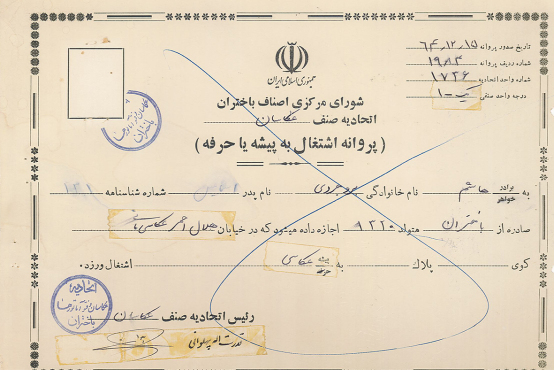 جمهوری اسلامی ایران
تاریخ صدور پروانه ۶۴/۱۲/۱۵
شماره ردیف پروانه ۱۹۸۳
شماره واحد اتحادیه ۱۷۳۶
درجه واحد صنفی یک-۱
شورای مرکزی اصناف باختران
اتحادیه صنف عکاسان
( پروانه اشتغال به پیشه یا حرفه )
به برادر خواهر هاشم نام خانوادگی بروجردی نام پدر شماره شناسنامه
صادره از باختران متولد اجازه داده میشود که در خیابان هلال احمر عکاسی
کوی پلاک به عکاسی اشتغال ورزد.
رئیس اتحادیه صنف عکاسان
قدرت اله پهلوانی
اتحادیه
باختران